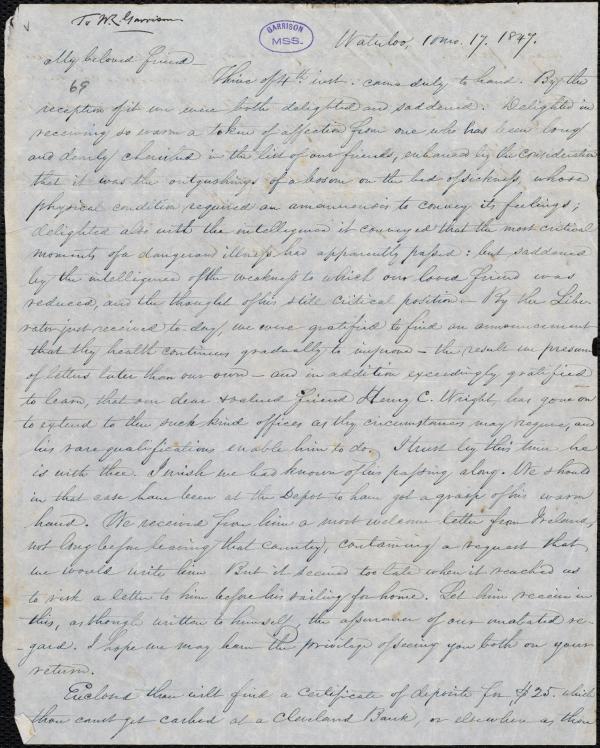 To W. L. Garrison
GARRISON
MSS.
Waterloo, 10 mo. 17. 1847.
My beloved friend —
69
Thine of 4th inst. came duly to hand. By the
reception of it we were both delighted and saddened. Delighted in
receiving so warm a token of affection from one who has been long
and dearly cherished in the list of our friends, enhanced by the consideration
that it was the outgushings of a bosom on the bed of sickness, whose
physical condition required an amanuensis to convey its feelings;
delighted also with the intelligence it conveyed that the most critical
moments of a dangerous illness had apparently passed: but saddened
by the intelligence of the weakness to which our loved friend was
reduced, and the thought of his still critical position. — By the Libe-
rator just received to-day, we were gratified to find an announcement
that thy health continues gradually to improve — the result we presume
of letters later than our own — and in addition exceedingly gratified
to learn, that our dear & valued friend Henry C. Wright, has gone on
to extend to thee such kind offices as thy circumstances may require, and
his rare qualifications enable him to do. I trust by this time he
is with thee. I wish we had known of his passing along. We should
in that case have been at the Depot to have got a grasp of his warm
hand. We received from him a most welcome letter from Ireland,
not long before leaving that country, containing a request that
we would write him. But it seemed too late when it reached us
to risk a letter to him before his sailing for home. Let him receive in
this, as though written to himself, the assurance of our unabated re-
gard. I hope we may have the privilege of seeing you both on your
return.
Enclosed thou wilt find a certificate of deposite for $25. which
thou canst get cashed at a Cleveland Bank, or elsewhere as thou